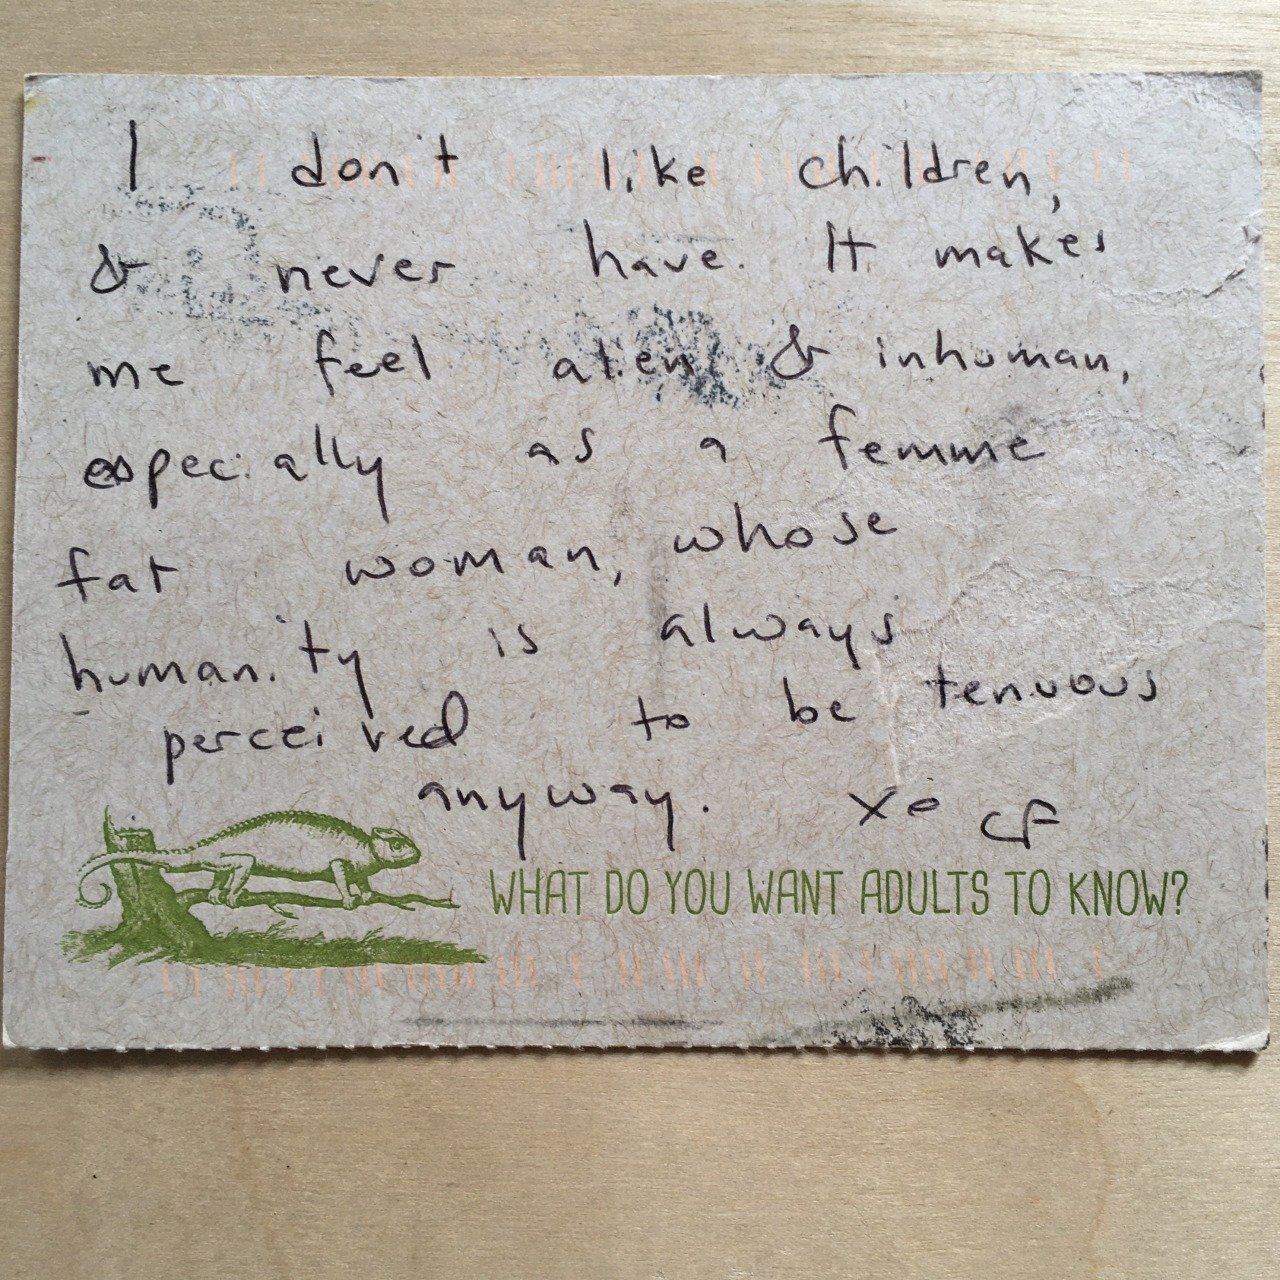 I don't like children,
& never have. It makes
me feel alien & inhuman,
especially as a femme
fat woman, whose
humanity is always
perceived to be tenuous
anyway. xo CF
WHAT DO YOU WANT ADULTS TO KNOW?